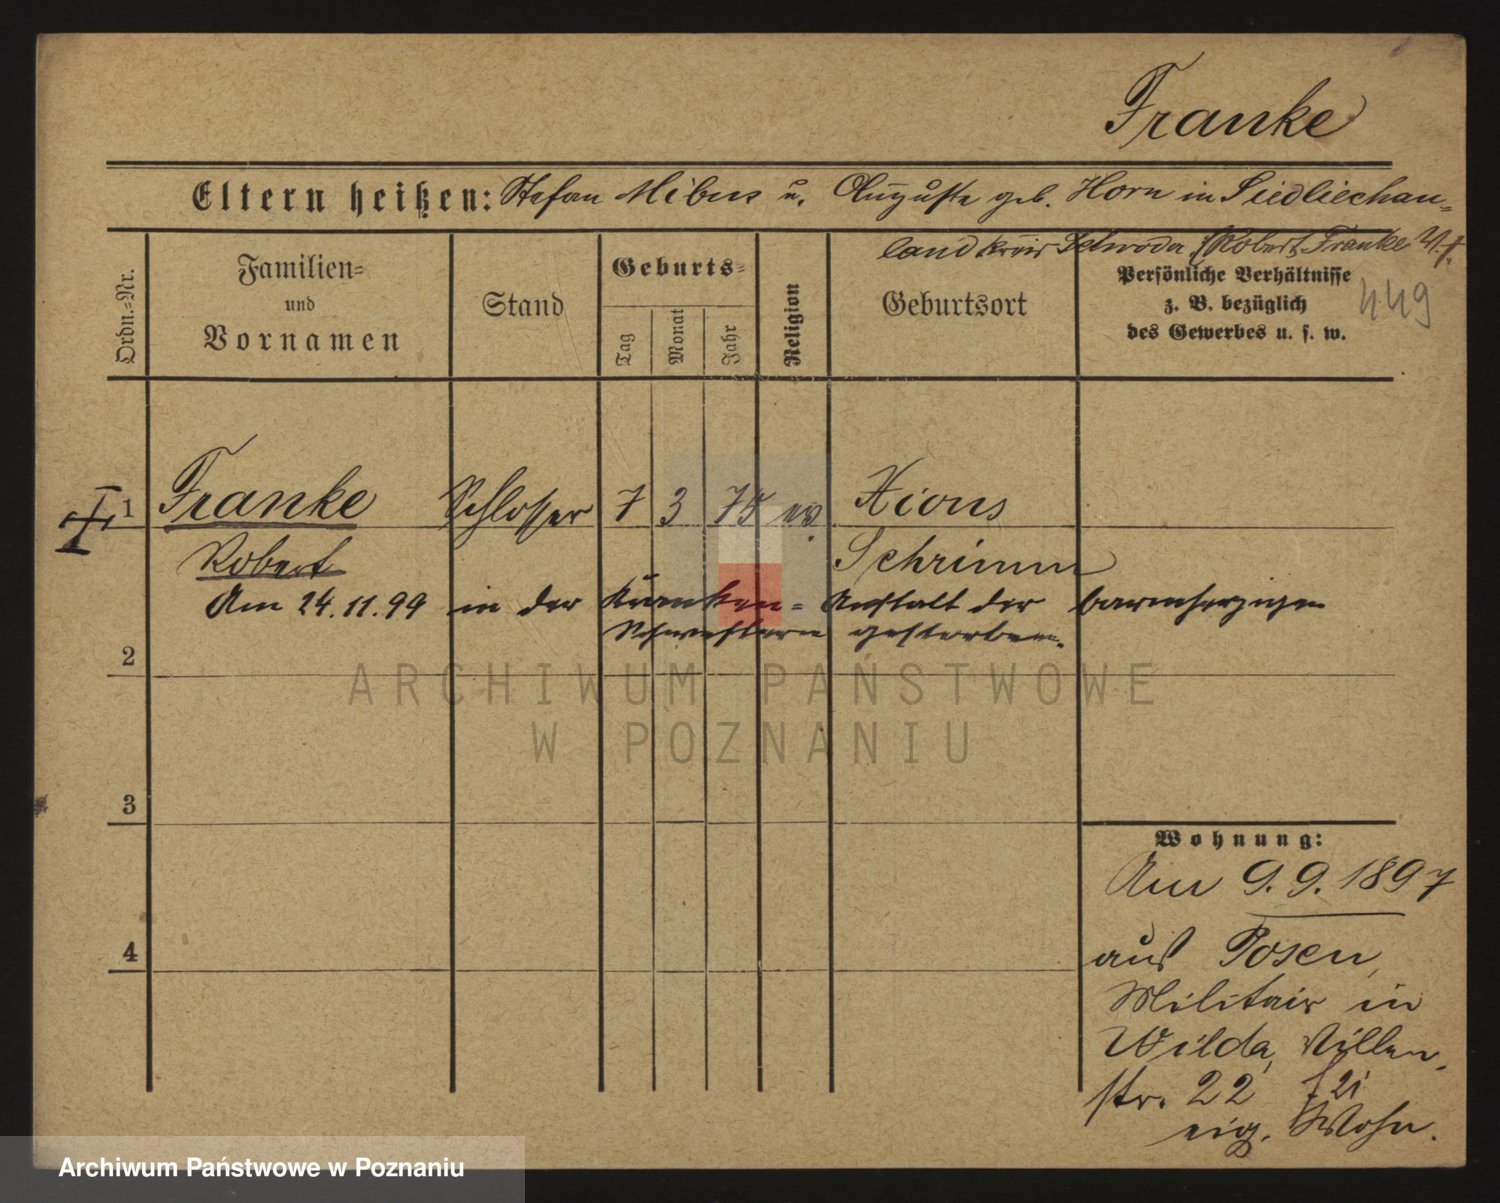 Franke
Eltern heißen: Stefan Mibus u. Auguste geb. Horn in Siedliechau=
land Kreis Schroda (Robert Franke
Ordn.=Nr.
Familien=
und
Vornamen
Stand
Geburts=
Tag
Monat
Jahr
Religion
Geburtsort
Persönliche Verhältnisse
z. B. bezüglich
des Gewerbes u. s. w.
449
1 Franke Schlosser 7 3 75 ev. Xions
Robert Schrimm
Am 24.11.99 in der Kranken= Anstalt der barmherzigen
Schwestern gestorben.
2
ARCHIWUM PAŃSTWOWE
W POZNANIU
3
Wohnung:
Am 9.9.1897
aus Posen,
Militair in
Wilda, Villen
4
str. 22
eig. Wohn.
Archiwum Państwowe w Poznaniu